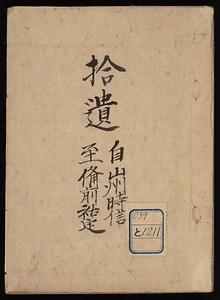 拾遺
自山州時信
至備前祐定
039
と1211